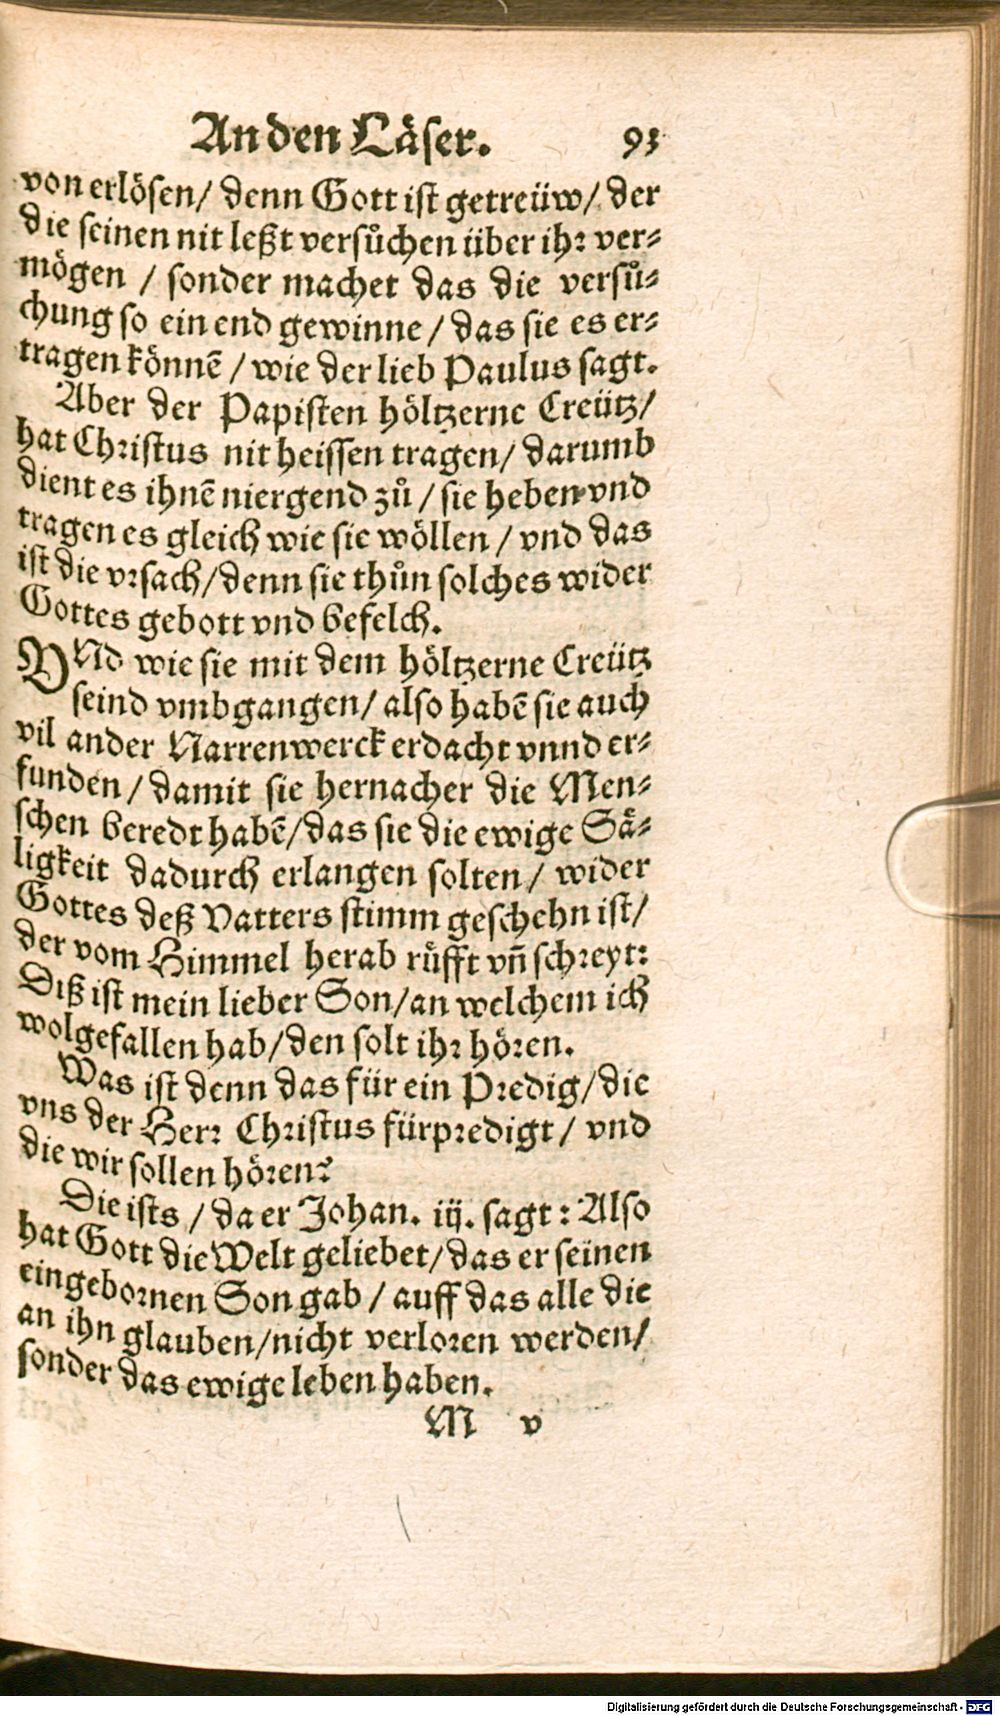 An den Läser. 93
von erlösen/ denn Gott ist getreüw/ der
die seinen nit leßt versůchen über ihr ver⸗
mögen / sonder machet das die versů⸗
chung so ein end gewinne / das sie es er⸗
tragen könnē / wie der lieb Paulus sagt.
Aber der Papisten höltzerne Creütz/
hat Christus nit heissen tragen/ darumb
dient es ihnē niergend zů / sie heben vnd
tragen es gleich wie sie wöllen / vnd das
ist die vrsach/ denn sie thůn solches wider
Gottes gebott vnd befelch.
VNd wie sie mit dem höltzerne Creütz
seind vmbgangen/ also habē sie auch
vil ander Narrenwerck erdacht vnnd er⸗
funden / damit sie hernacher die Men⸗
schen beredt habē/ das sie die ewige Sä⸗
ligkeit dadurch erlangen solten / wider
Gottes deß Vatters stimm geschehn ist/
der vom Himmel herab rüfft vn̄ schreyt:
Diß ist mein lieber Son/ an welchem ich
wolgefallen hab/ den solt ihr hören.
Was ist denn das für ein Predig/ die
vns der Herr Christus fürpredigt / vnd
die wir sollen hören?
Die ists / da er Johan. iij. sagt: Also
hat Gott die Welt geliebet/ das er seinen
eingebornen Son gab / auff das alle die
an ihn glauben/ nicht verloren werden/
sonder das ewige leben haben.
M v
Digitalisierung gefördert durch die Deutsche Forschungsgemeinschaft - DFG